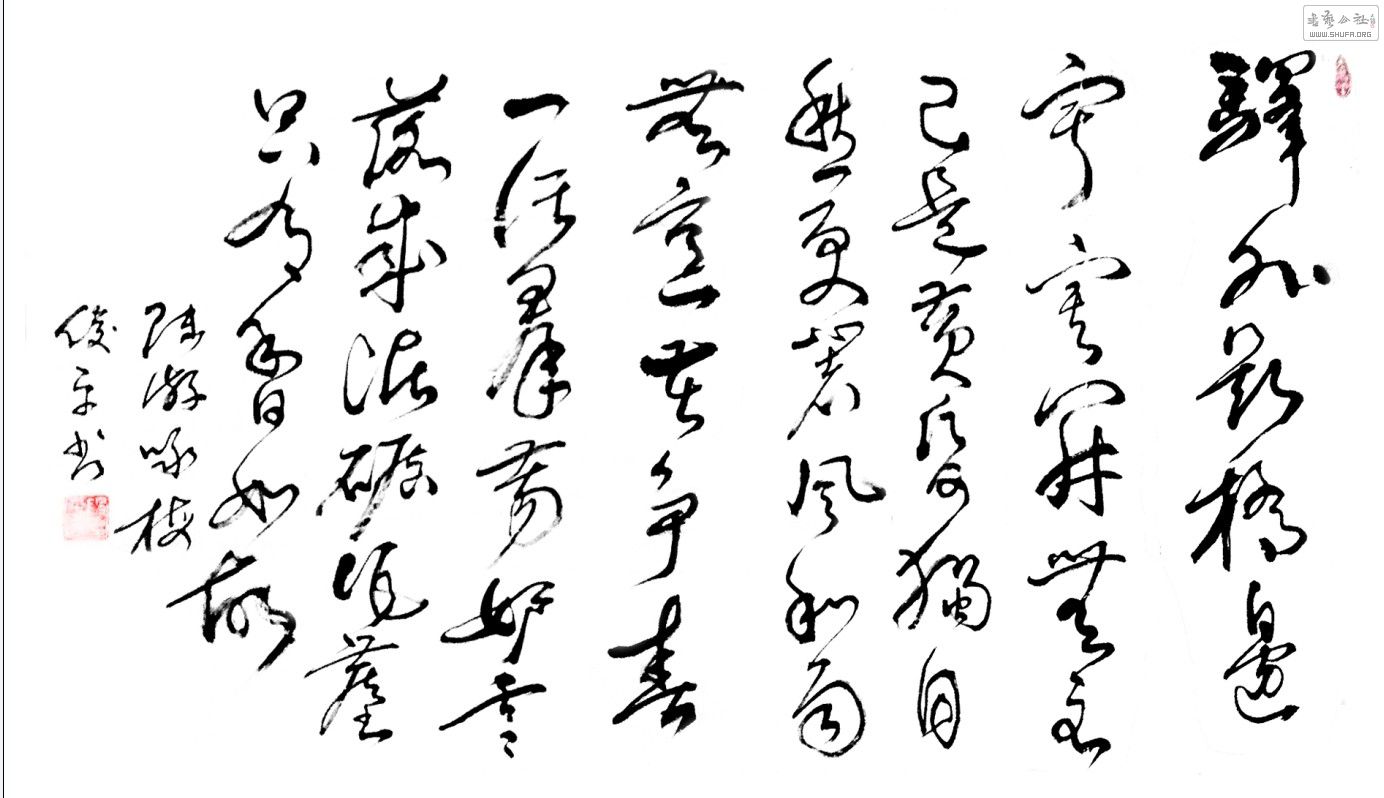 驛外斷橋邊
寂寞開無主
已是黃昏獨自
愁更著風和雨
無意苦爭春
一任羣芳妒零
落成泥碾作塵
只有香如故
陸游咏梅
俊平书
書藝公社
WWW.SHUFA.ORG